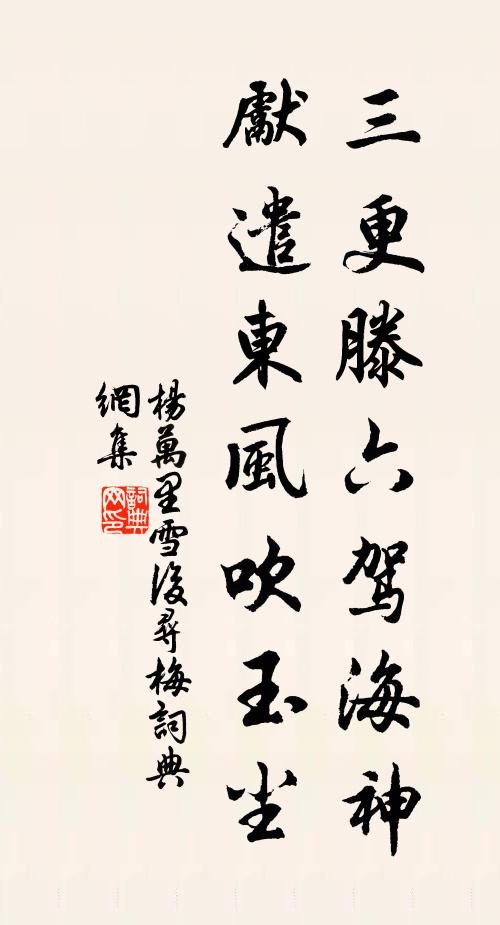 三更滕六駕海神
獻遣東風吹玉尘
楊萬里雪後尋梅詞典
網集
詞典
网印